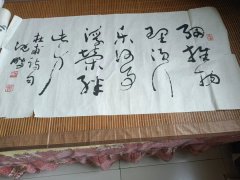 细推物
理须行
乐何用
浮荣绊
此身
杜甫诗句
沈鹏